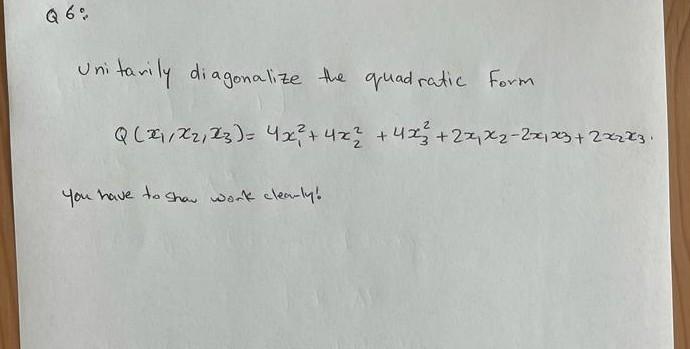 Q 6:
Unitarily diagonalize the quadratic Form
Q(x₁,x₂,x₃)= 4x₁²+4x₂²+4x₃²+2x₁x₂-2x₁x₃+2x₂x₃.
You have to show work clearly!